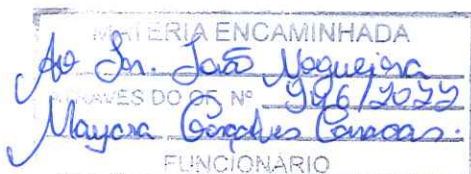 MATÉRIA ENCAMINHADA
Ao Sr. João Nogueira
ATRAVÉS DO OF. Nº 996/2022
Mayara Gonçalves
FUNCIONÁRIO